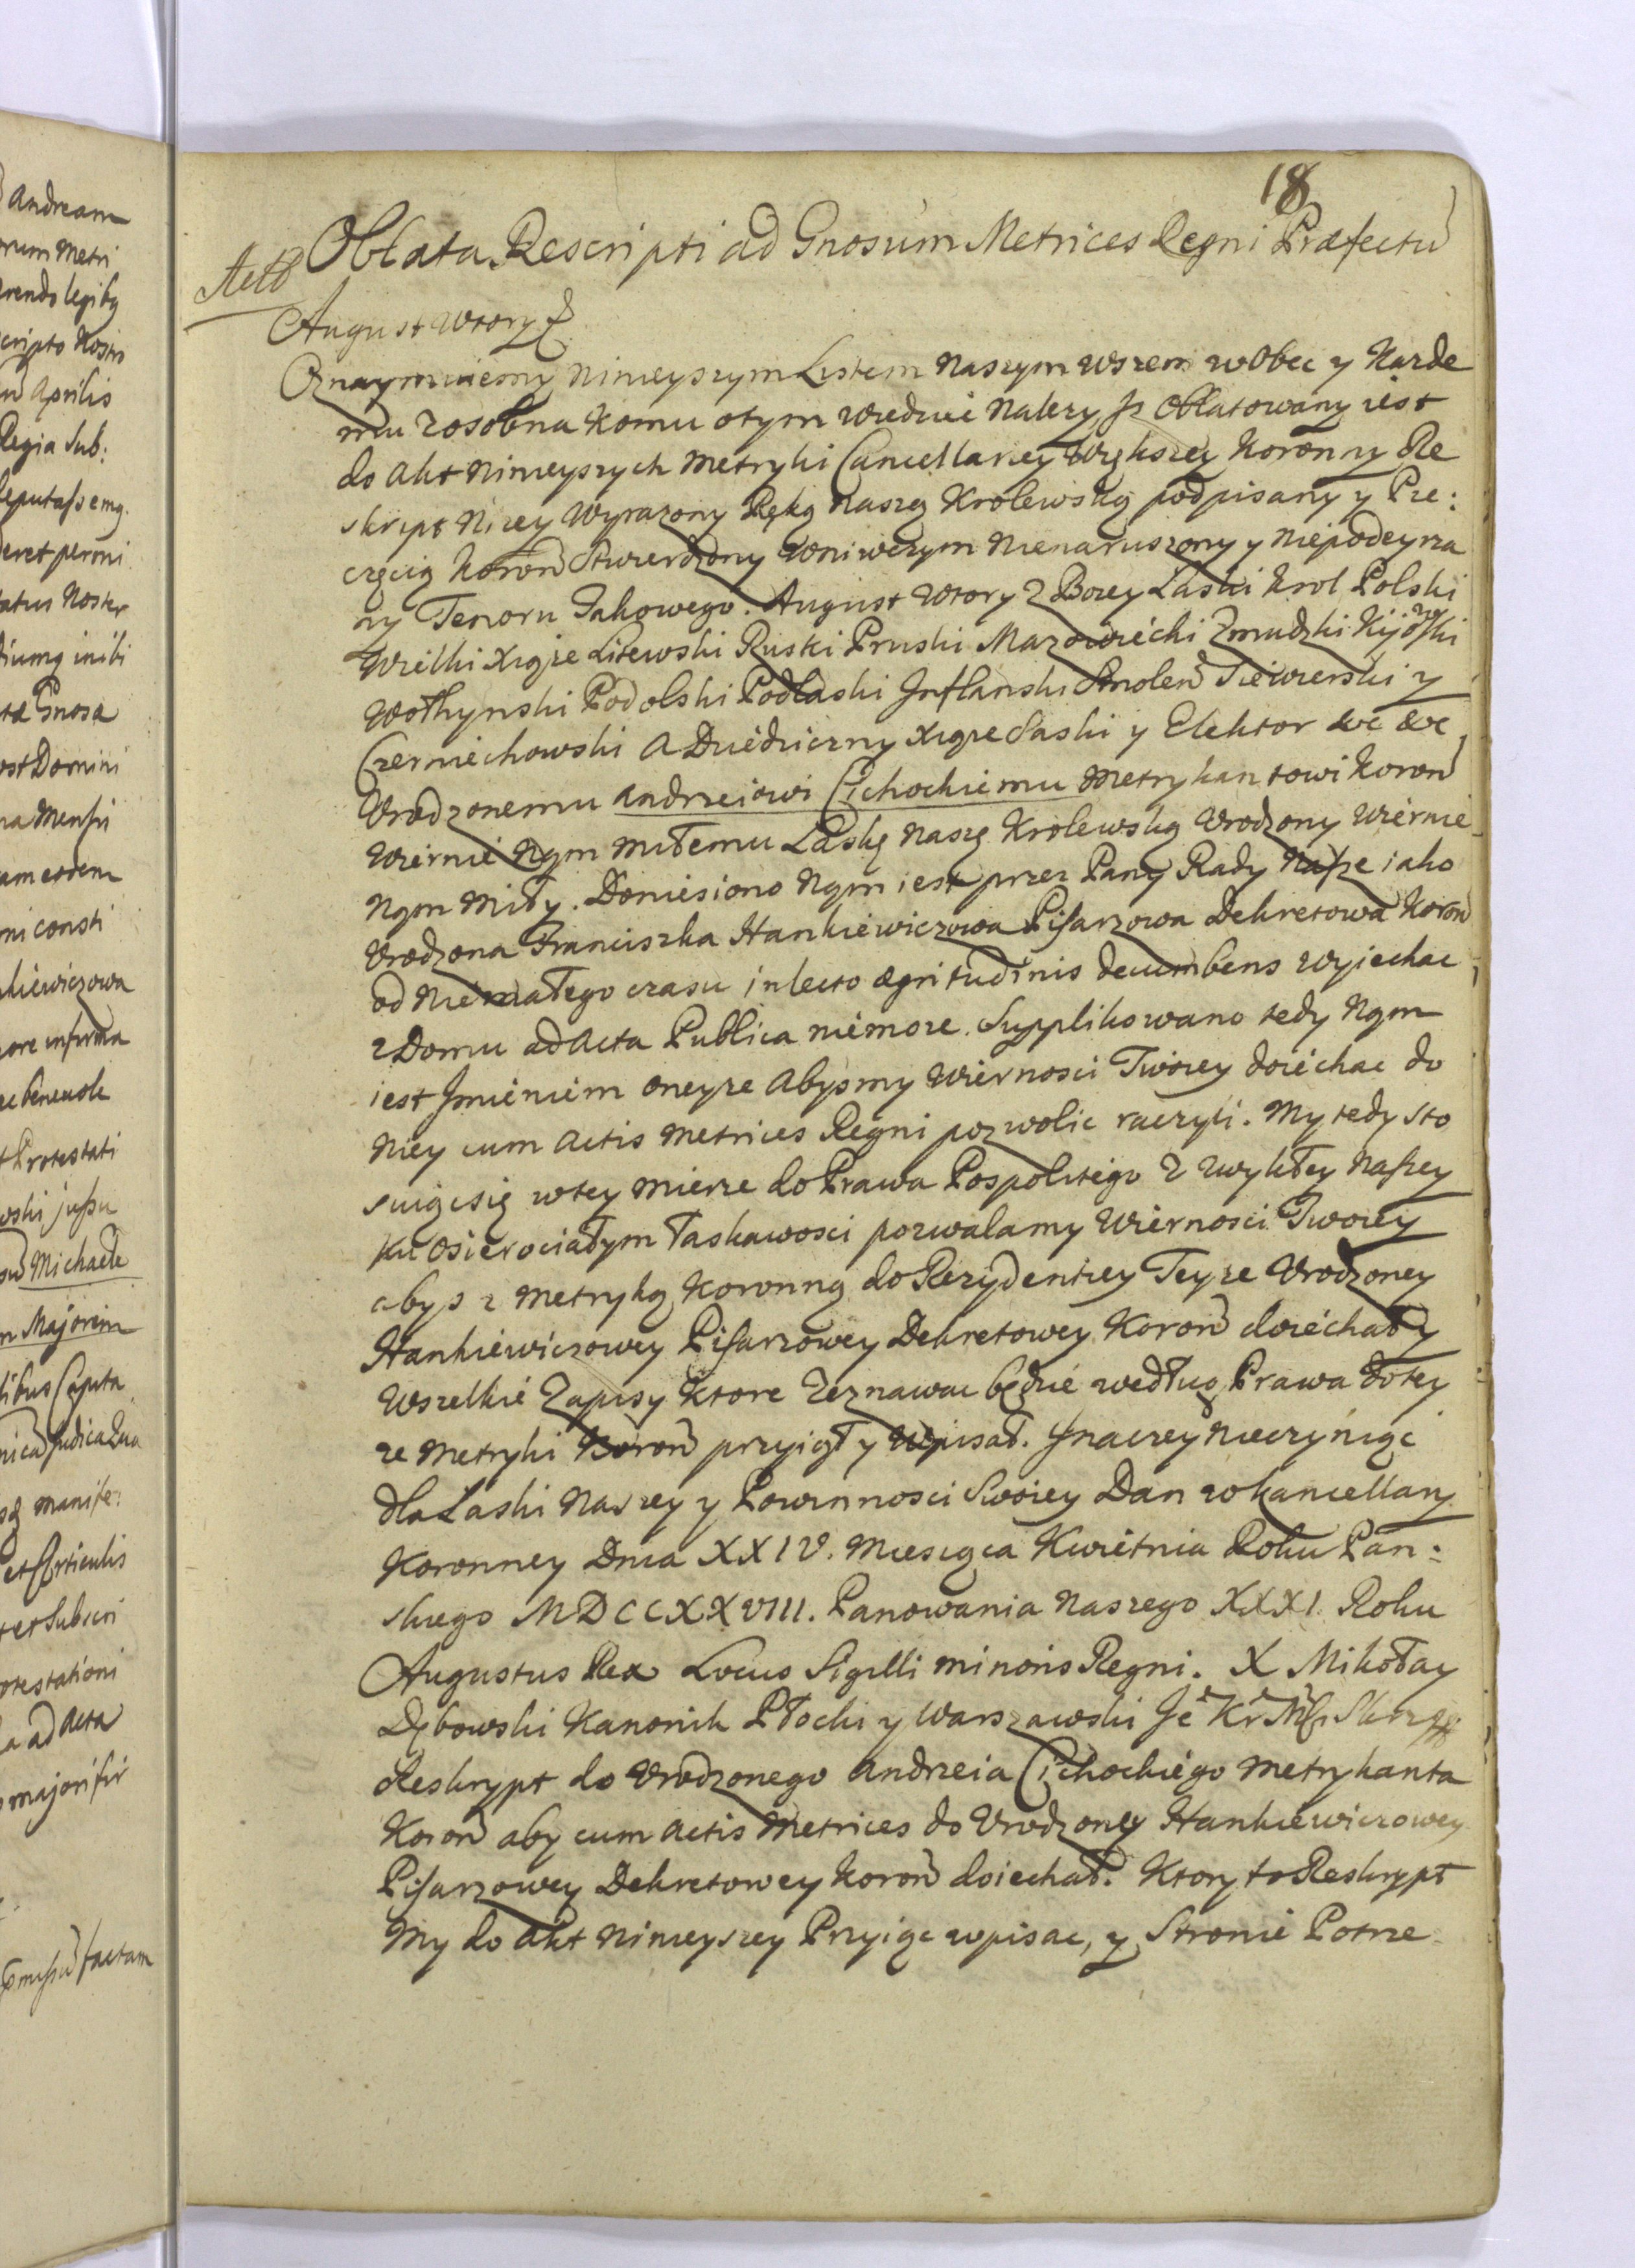 18
Oblata Rescripti ad Gnosum Metrices Regni Præfectu
Actb
August Wtory
Oznaymuiemy nineyszym Listem naszym wszem wobec y Kazde
mu zosobna komu otym wiedzie nalezy Jz Oblatowany iest
do akt nineyszych Metryki Cancellariey Większey Koronny Re
skript nizey wyrazony Ręką naszą Krolewską podpisany y Pie:
częcią Koron Stwierdzony wniwczym nienaruszony y niepodeyrza
ny Tenoru Takowego. August Wtory z Bozey Łaski Krol Polski
Wielki Xiąze Litewski Ruski Pruski Mazowiecki Zmudzki Kijowski
Wołhynski Podolski Podlaski Jnflanski Smolen Siewierski y
Czerniechowski a Dziedziczny Xiąze Saski y Elektor &c &c
Urodzonemu Andrzeiowi Cichockiemu Metrykantowi Koron
Wiernie Nąm miłemu Łaskę naszę Krolewską Urodzony Wiernie
Nąm miły. Doniesiono Nąm iest przez Pany Rady Nasze iako
Urodzona Franciszka Hankiewiczowa Pisarzowa Dekretowa Koron
od niemałego czasu in lecto ægritudinis decumbens wyiechac
z Domu ad Acta Publica niemoze. Supplikowano tedy Nąm
iest Jmieniem oneyze abysmy Wiernosci Twoiey doiechac do
niey cum Actis Metrices Regni pozwolic raczyli. My tedy sto
suiąc się wtey mierze do Prawa Pospolitego z zwykłey naszey
ku osierociałym łaskawosci pozwalamy Wiernosci Twoiey
abys z Metryką Koronną do Rezydentiey Teyze Urodzoney
Hankiewiczowey Pisarzowey Dekretowey Koron doiechał y
wszelkie Zapisy ktore zeznawac będzie według Prawa do tey
ze Metryki Koron przyiął y wpisał. Jnaczey nieczyniąc
dla Łaski naszey y Powinnosci Swoiey Dan w Kancellary
Koronney Dnia XXIV. Miesiąca Kwietnia Roku Pan:
skiego MDCCXXVIII. Panowania naszego XXXI. Roku
Augustus Rex Locus Sigilli minoris Regni. X Mikołay
Dębowski Kanonik Płocki y Warszawski Je Kr Mści
Reskrypt do Urodzonego Andrzeia Cichockiego Metrykanta
Koron aby cum Actis Metrices do Urodzoney Hankiewiczowey
Pisarzowey Dekretowey Koron doiechał. Ktory to Reskrypt
My do Akt nineyszey Przyiąc wpisac, y Stronie Potrze